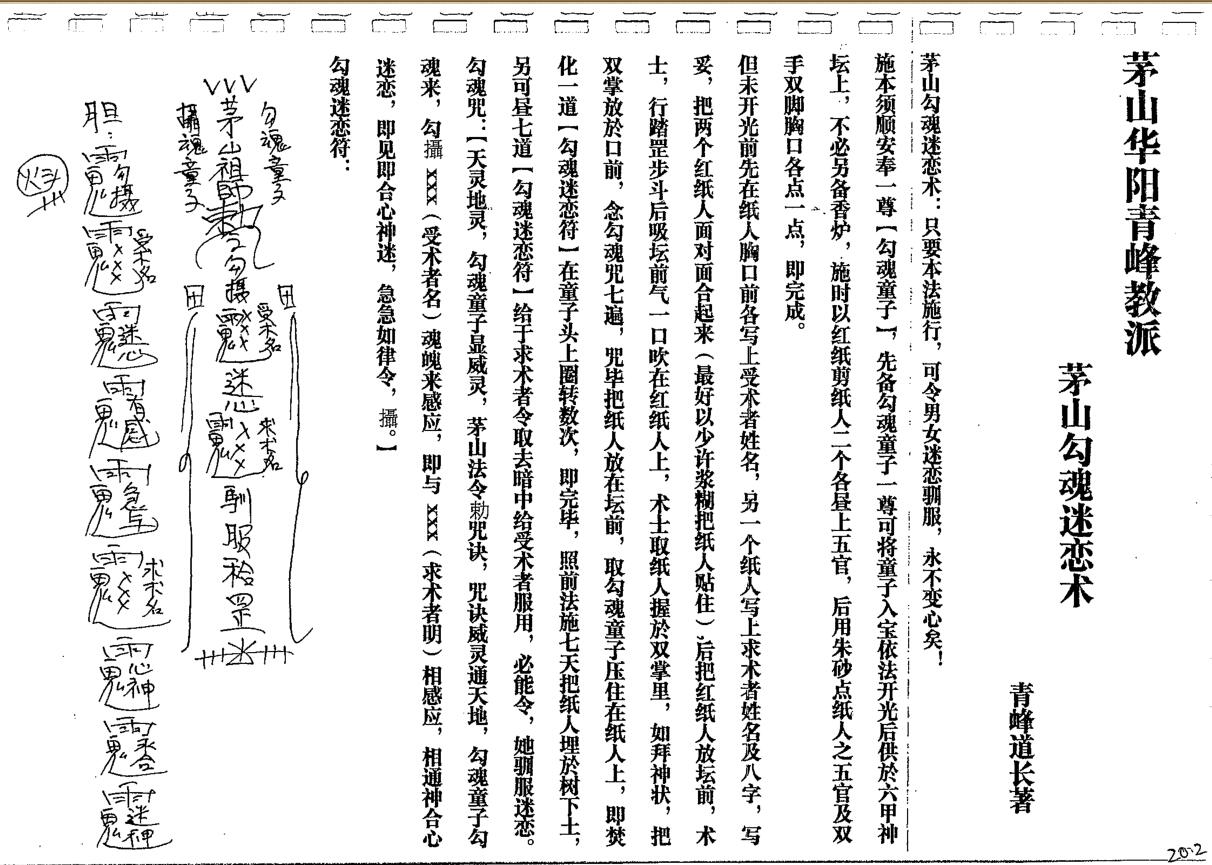 茅山华阳青峰教派
茅山勾魂迷恋术
青峰道长著
茅山勾魂迷恋术：只要本法施行，可令男女迷恋驯服，永不变心矣！
施本须顺安奉一尊【勾魂童子】，先备勾魂童子一尊可将童子入宝依法开光后供於六甲神
坛上，不必另备香炉，施时以红纸剪纸人二个各昼上五官，后用朱砂点纸人之五官及双
手双脚胸口各点一点，即完成。
但未开光前先在纸人胸口前各写上受术者姓名，另一个纸人写上求术者姓名及八字，写
妥，把两个红纸人面对面合起来（最好以少许浆糊把纸人贴住），后把红纸人放坛前，术
士，行踏罡步斗后吸坛前气一口吹在红纸人上，术士取纸人握於双掌里，如拜神状，把
双掌放於口前，念勾魂咒七遍，咒毕把纸人放在坛前，取勾魂童子压住在纸人上，即焚
化一道【勾魂迷恋符】在童子头上圈转数次，即完毕，照前法施七天把纸人埋於树下土，
另可昼七道【勾魂迷恋符】给于求术者令取去暗中给受术者服用，必能令，她驯服迷恋。
勾魂咒：【天灵地灵，勾魂童子显威灵，茅山法令勅咒诀，咒诀威灵通天地，勾魂童子勾
魂来，勾攝 xxx（受术者名）魂魄来感应，即与 xxx（求术者明）相感应，相通神合心
迷恋，即见即合心神迷，急急如律令，攝。】
勾魂迷恋符：
勾魂童子
茅山祖師勅令勾攝
攝魂童子
受术名
xxx
迷心
求术名
xxx
馴服
罡
胆：
勾攝
xxx
受术名
迷心
有感
xxx
求术名
心神
迷神
20-2